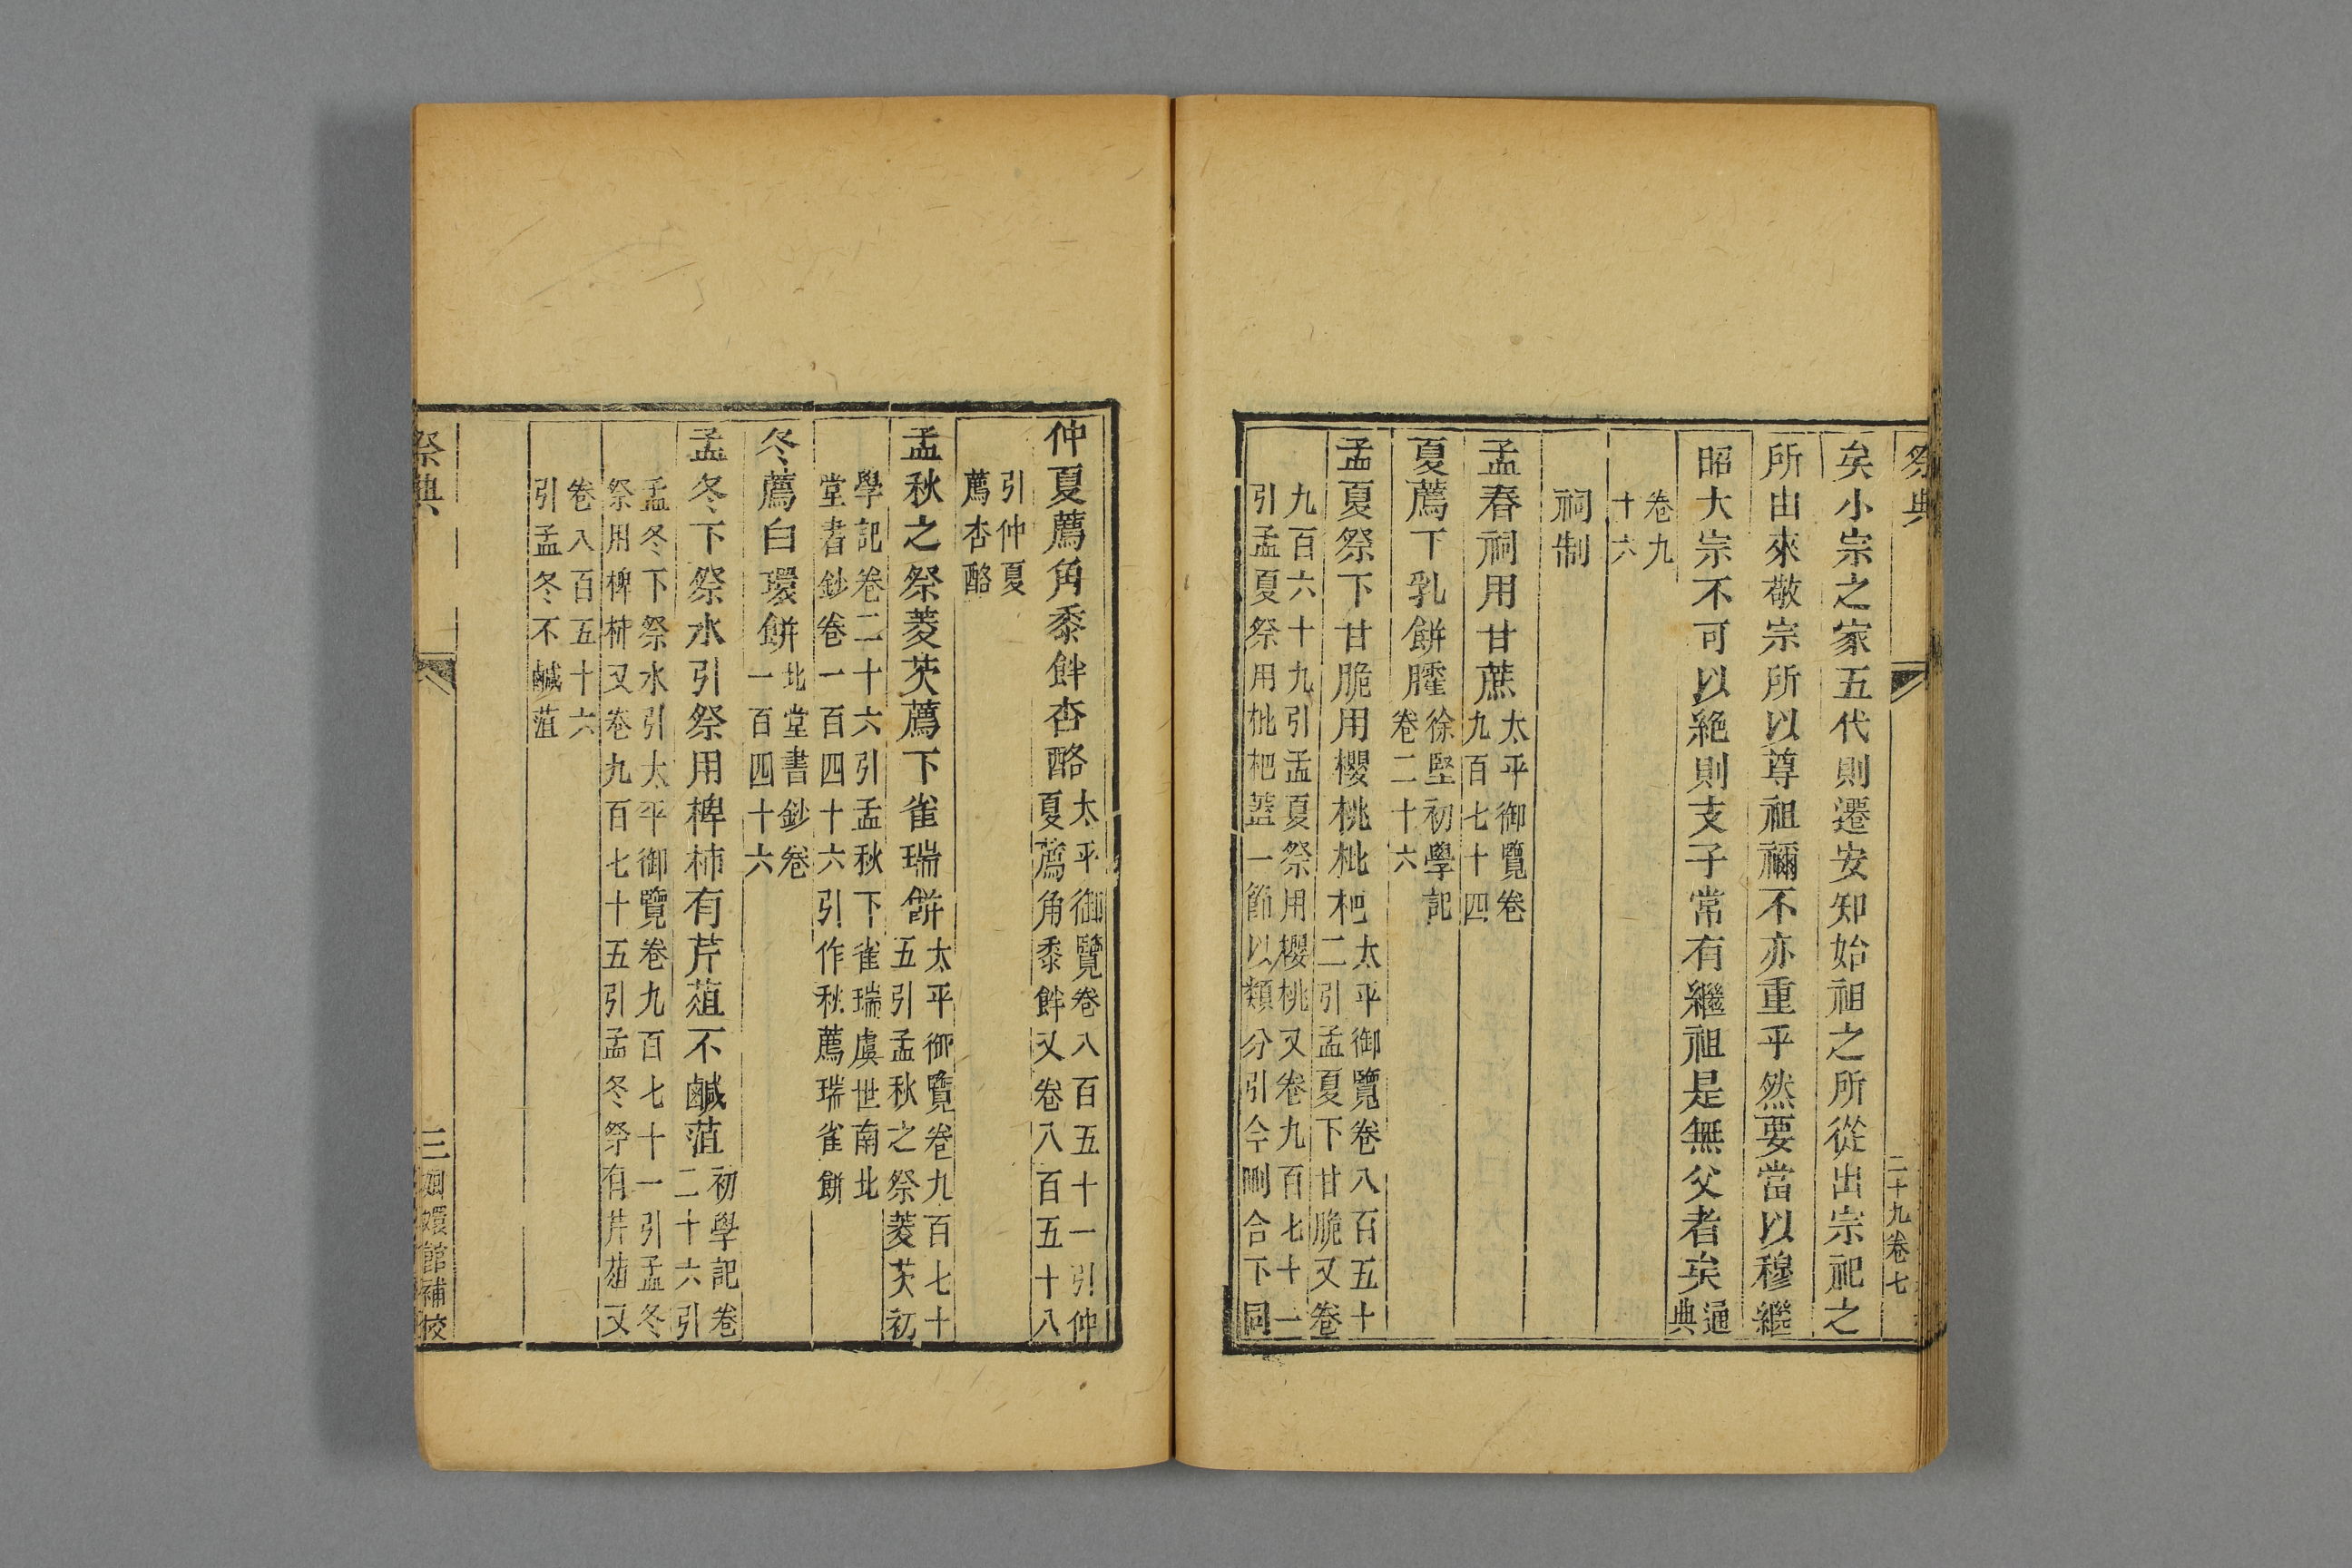 祭典
二十九卷七
矣小宗之家五代則遷安知始祖之所從出宗祀之
所由來敬宗所以尊祖禰不亦重乎然要當以穆繼
昭大宗不可以絶則支子常有繼祖是無父者矣通典
卷九
十六
祠制
孟春祠用甘蔗太平御覽卷九百七十四
夏薦下乳餅臛徐堅初學記卷二十六
孟夏祭下甘脆用櫻桃枇杷太平御覽卷八百五十二引孟夏下甘脆又卷
九百六十九引孟夏祭用櫻桃又卷九百七十一
引孟夏祭用枇杷蓋一節以類分引今刪合下同
仲夏薦角黍䬳杏酪太平御覽卷八百五十一引仲夏薦角黍䬳又卷八百五十八
引仲夏
薦杏酪
孟秋之祭菱芡薦下雀瑞餅太平御覽卷九百七十五引孟秋之祭菱芡初
學記卷二十六引孟秋下雀瑞虞世南北
堂書鈔卷一百四十六引作秋薦瑞雀餅
冬薦白環餅北堂書鈔卷一百四十六
孟冬下祭水引祭用椑柹有芹葅不鹹菹初學記卷二十六引
孟冬下祭水引太平御覽卷九百七十一引孟冬
祭用椑柹又卷九百七十五引孟冬祭有芹葅又
卷八百五十六
引孟冬不鹹菹
祭典
三
嫏嬛館補校